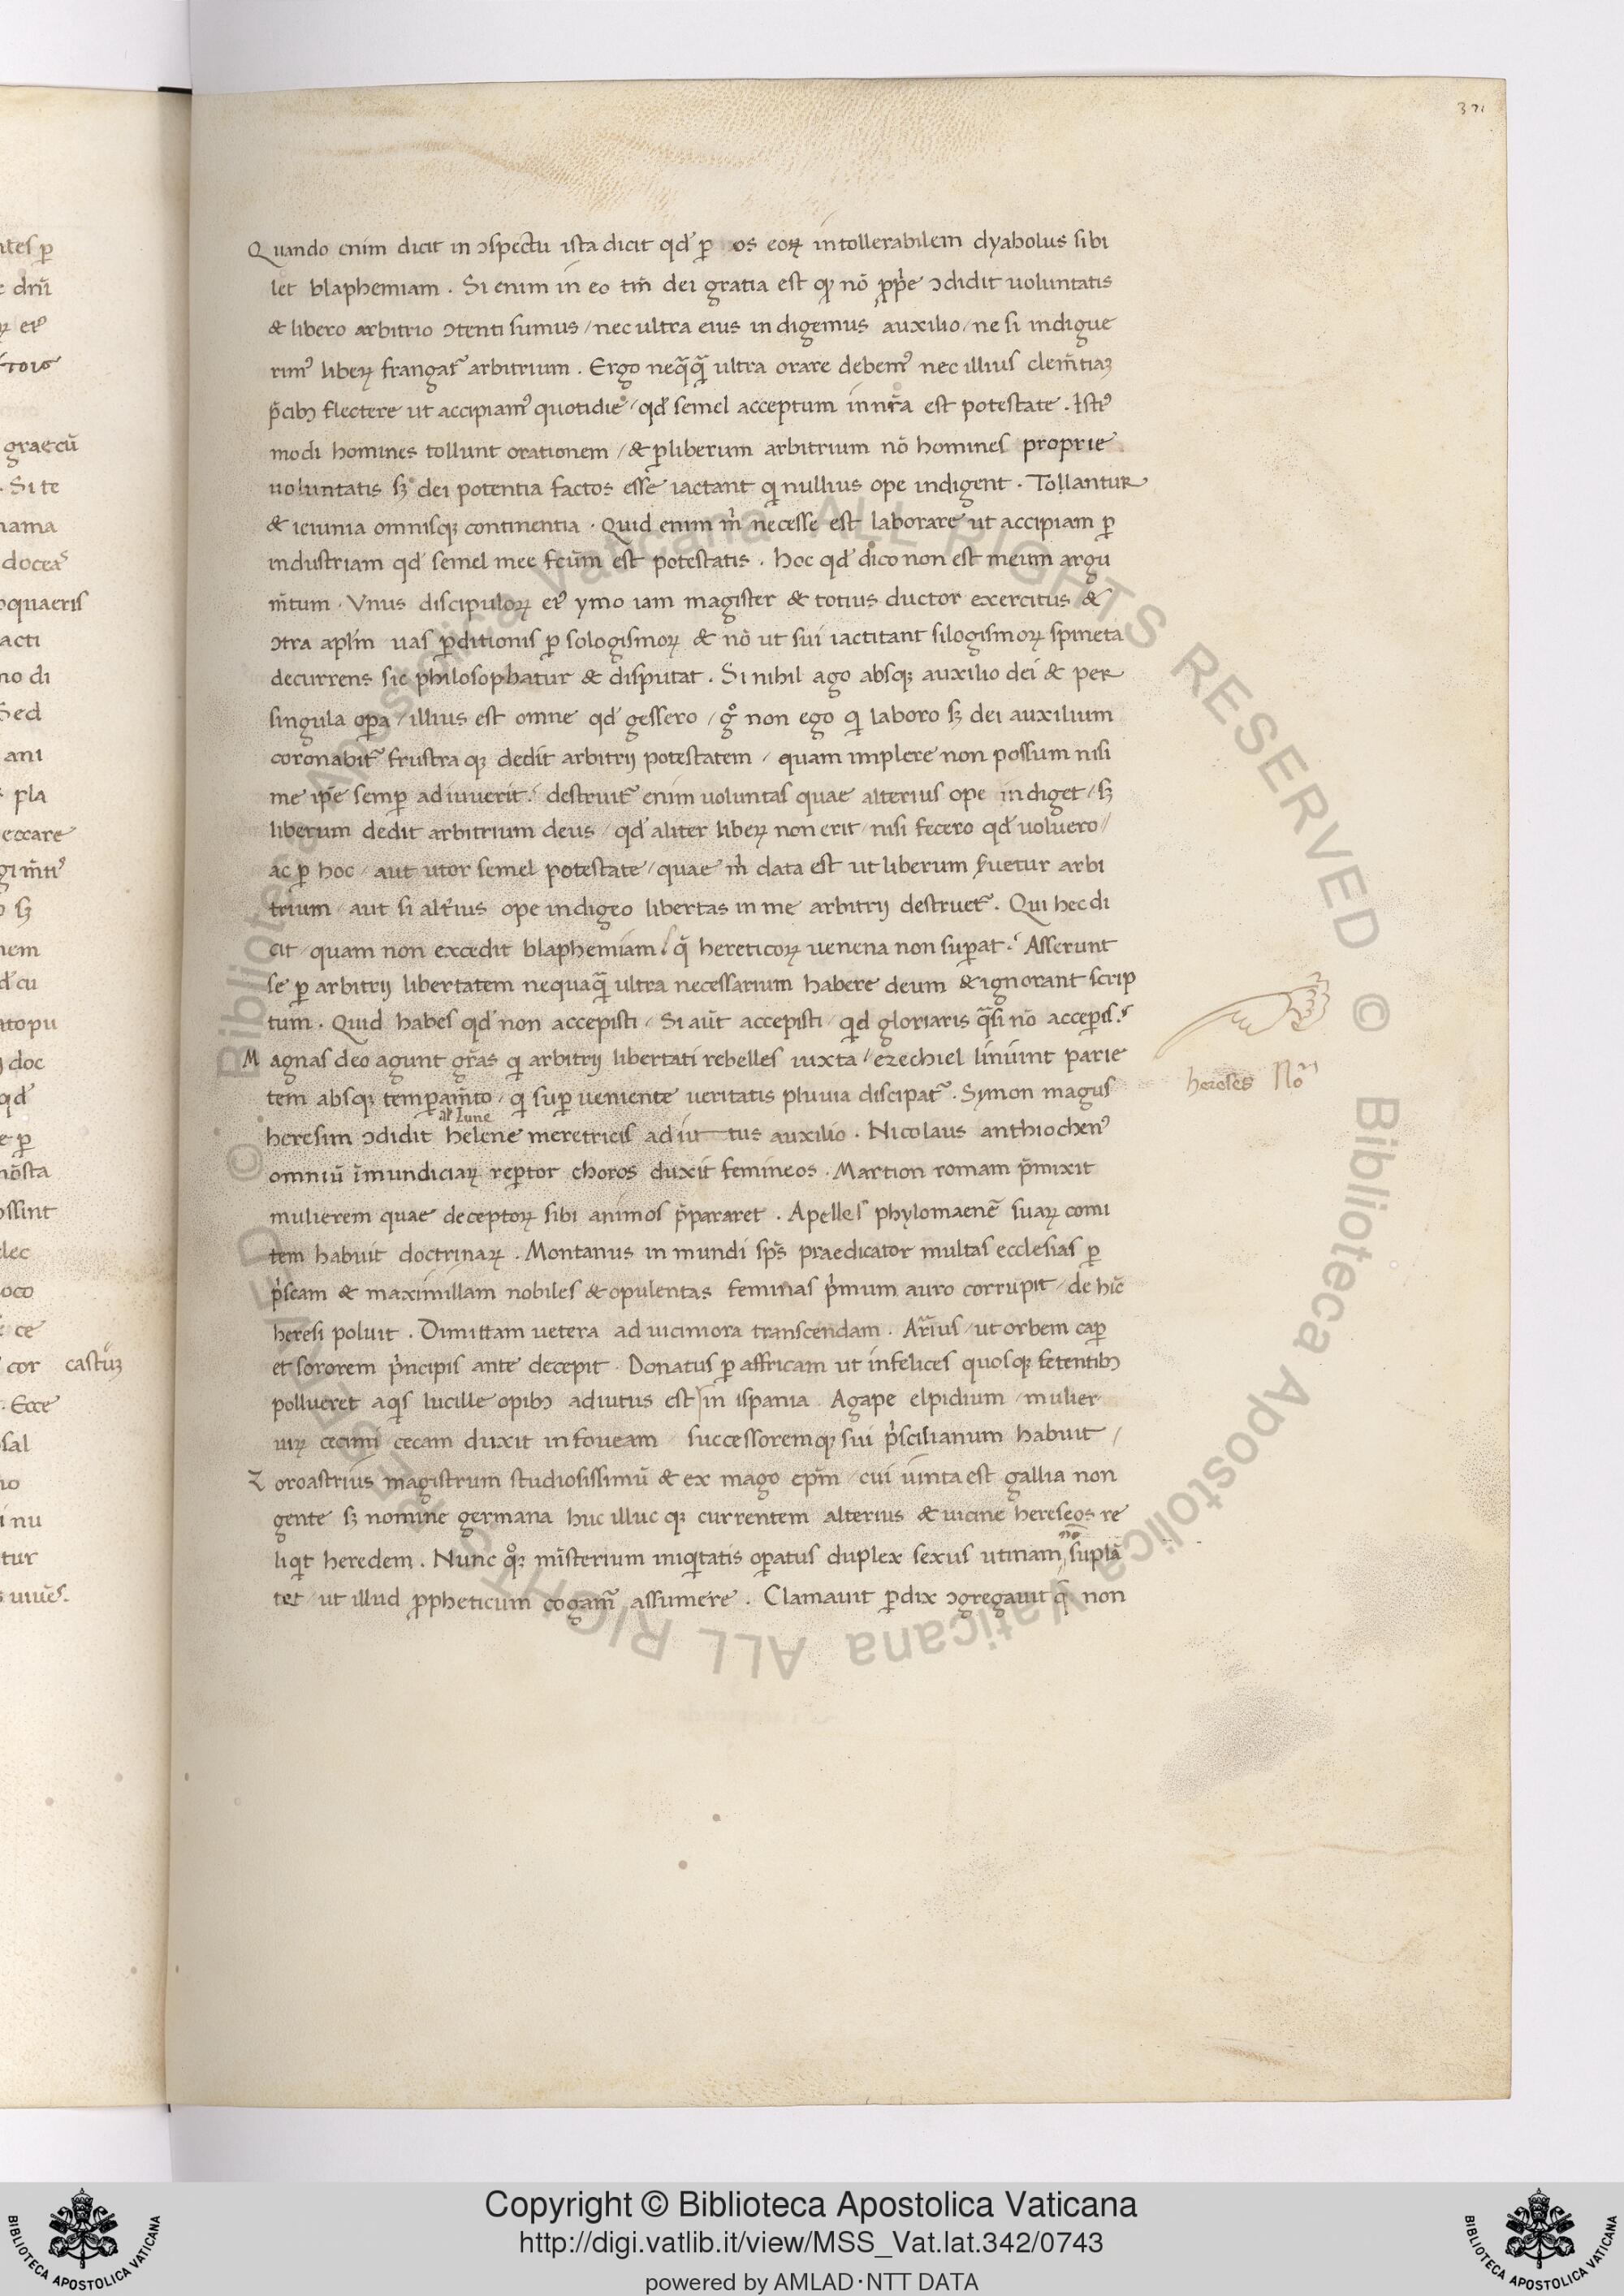 371
Quando enim dicit in ɔspectu ista dicit qd̓ ꝑ os eoꝝ intollerabilem dyabolus sibi
let blaphemiam . Si enim in eo tm̄ dei gratia est ꝙ nō ꝓp̄e ɔdidit uoluntatis
& libero arbitrio ɔtenti sumus / nec ultra eius indigemus auxilio / ne si indigue
rimꝰ liberꝝ frangat᷑ arbitrium . Ergo neq̄q̄ ultra orare debemꝰ nec illius clem̄tiaꝫ
p̄cibꝫ flectere ut accipiamꝰ quotidie / qd̓ semel acceptum in nr̄a est potestate . Istiꝰ
modi homines tollunt orationem / & ꝑ liberum arbitrium nō hominēs proprie
uoluntatis sꝫ dei potentia factos esse iactant qͥ nullius ope indigent . Tollantur
& ieiunia omnisqꝫ continentia . Quid enim m̍ necesse est laborare ut accipiam ꝑ
industriam qd̓ semel mee fcūm est potestatis . hoc qd̓ dico non est meum argu
m̄tum . Vnus discipuloꝝ eiꝰ ymo iam magister & totius ductor exercitus &
ɔtra aplīm uas ꝑditionis ꝑ sologismoꝝ & nō ut sui iactitant silogismoꝝ spineta
decurrens sic philosophatur & disputat . Si nihil ago absqꝫ auxilio dei & per
singula oꝑa / illius est omne qd̓ gessero / gͦ non ego qͥ laboro sꝫ dei auxilium
coronabit᷑ frustra qꝫ dedit arbitrij potestatem / quam implere non possum nisi
me ip̄e semꝑ adiuuerit . destruit᷑ enim uoluntas quae alterius ope indiget / sꝫ
liberum dedit arbitrium deus / qd̓ aliter liberꝝ non erit / nisi fecero qd̓ uoluero /
ac ꝑ hoc / aut utor semel potestate / quae m̍ data est ut liberum suetur arbi
trium / aut si alt̓ius ope indigeo libertas in me arbitrij destruet᷑ . Qui hec di
cit / quam non excedit blaphemiam / q̄ hereticoꝝ uenena non suꝑat . Asserunt
se ꝑ arbitrij libertatem nequaq̄ ultra necessarium habere deum & ignorant scrip
tum . Quid habes qd̓ non accepisti / Si aūt accepisti / qͥd gloriaris q̄si nō acceꝑis.
Magnas deo agunt gr̄as qͥ arbitrij libertati rebelles iuxta / ezechiel linuint parie
tem absqꝫ temꝑam̄to / qͥ suꝑueniente ueritatis pluuia discipat᷑ . Symon magus
al̓ Lune
heresim ɔdidit helene meretricis adiu tus auxilio . Nicolaus anthiochenꝰ
omniū īmundiciaꝝ reꝑtor choros duxit femineos . Martion romam p̄mixit
mulierem quae deceptoꝝ sibi animos p̄pararet . Apelles phylomaenē suaꝝ comi
tem habuit doctrinaꝝ . Montanus in mundi sp̄s praedicator multas ecclesias ꝑ
pͥscam & maximillam nobiles & opulentas feminas pͥmum auro corrupit / de hīc
heresi poluit . Dimittam uetera ad uiciniora transcendam . Arrius / ut orbem caꝑ
et sororem pͥncipis ante decepit . Donatus ꝑ affricam ut infelices quosqꝫ fetentibꝫ
pollueret aqͥs lucille opibꝫ adiutus est / in ispania . Agape elpidium / mulier
uiꝝ cecum cecam duxit in foueam / successoremqꝫ sui pͥscilianum habuit /
Zoroastrius magistrum studiosissimū & ex mago ep̄m / cui uinta est gallia non
gente sꝫ nomine germana huc illuc qꝫ currentem alterius & uicine hereseos re
liqͥt heredem . Nunc qͦꝫ mīsterium iniqͥtatis oꝑatus duplex sexus utinam suplā
no
tet / ut illud ꝓpheticum cogam᷑ assumere . Clamauit ꝑdix ɔgregauit q̄ non
hereses Noͣ
castūꝫ
Copyright © Biblioteca Apostolica Vaticana
http://digi.vatlib.it/view/MSS_Vat.lat.342/0743
powered by AMLAD·NTT DATA
BIBLIOTECA APOSTOLICA VATICANA
BIBLIOTECA APOSTOLICA VATICANA
© Biblioteca Apostolica Vaticana ALL RIGHTS RESERVED © Biblioteca Apostolica Vaticana ALL RIGHTS RESERVED